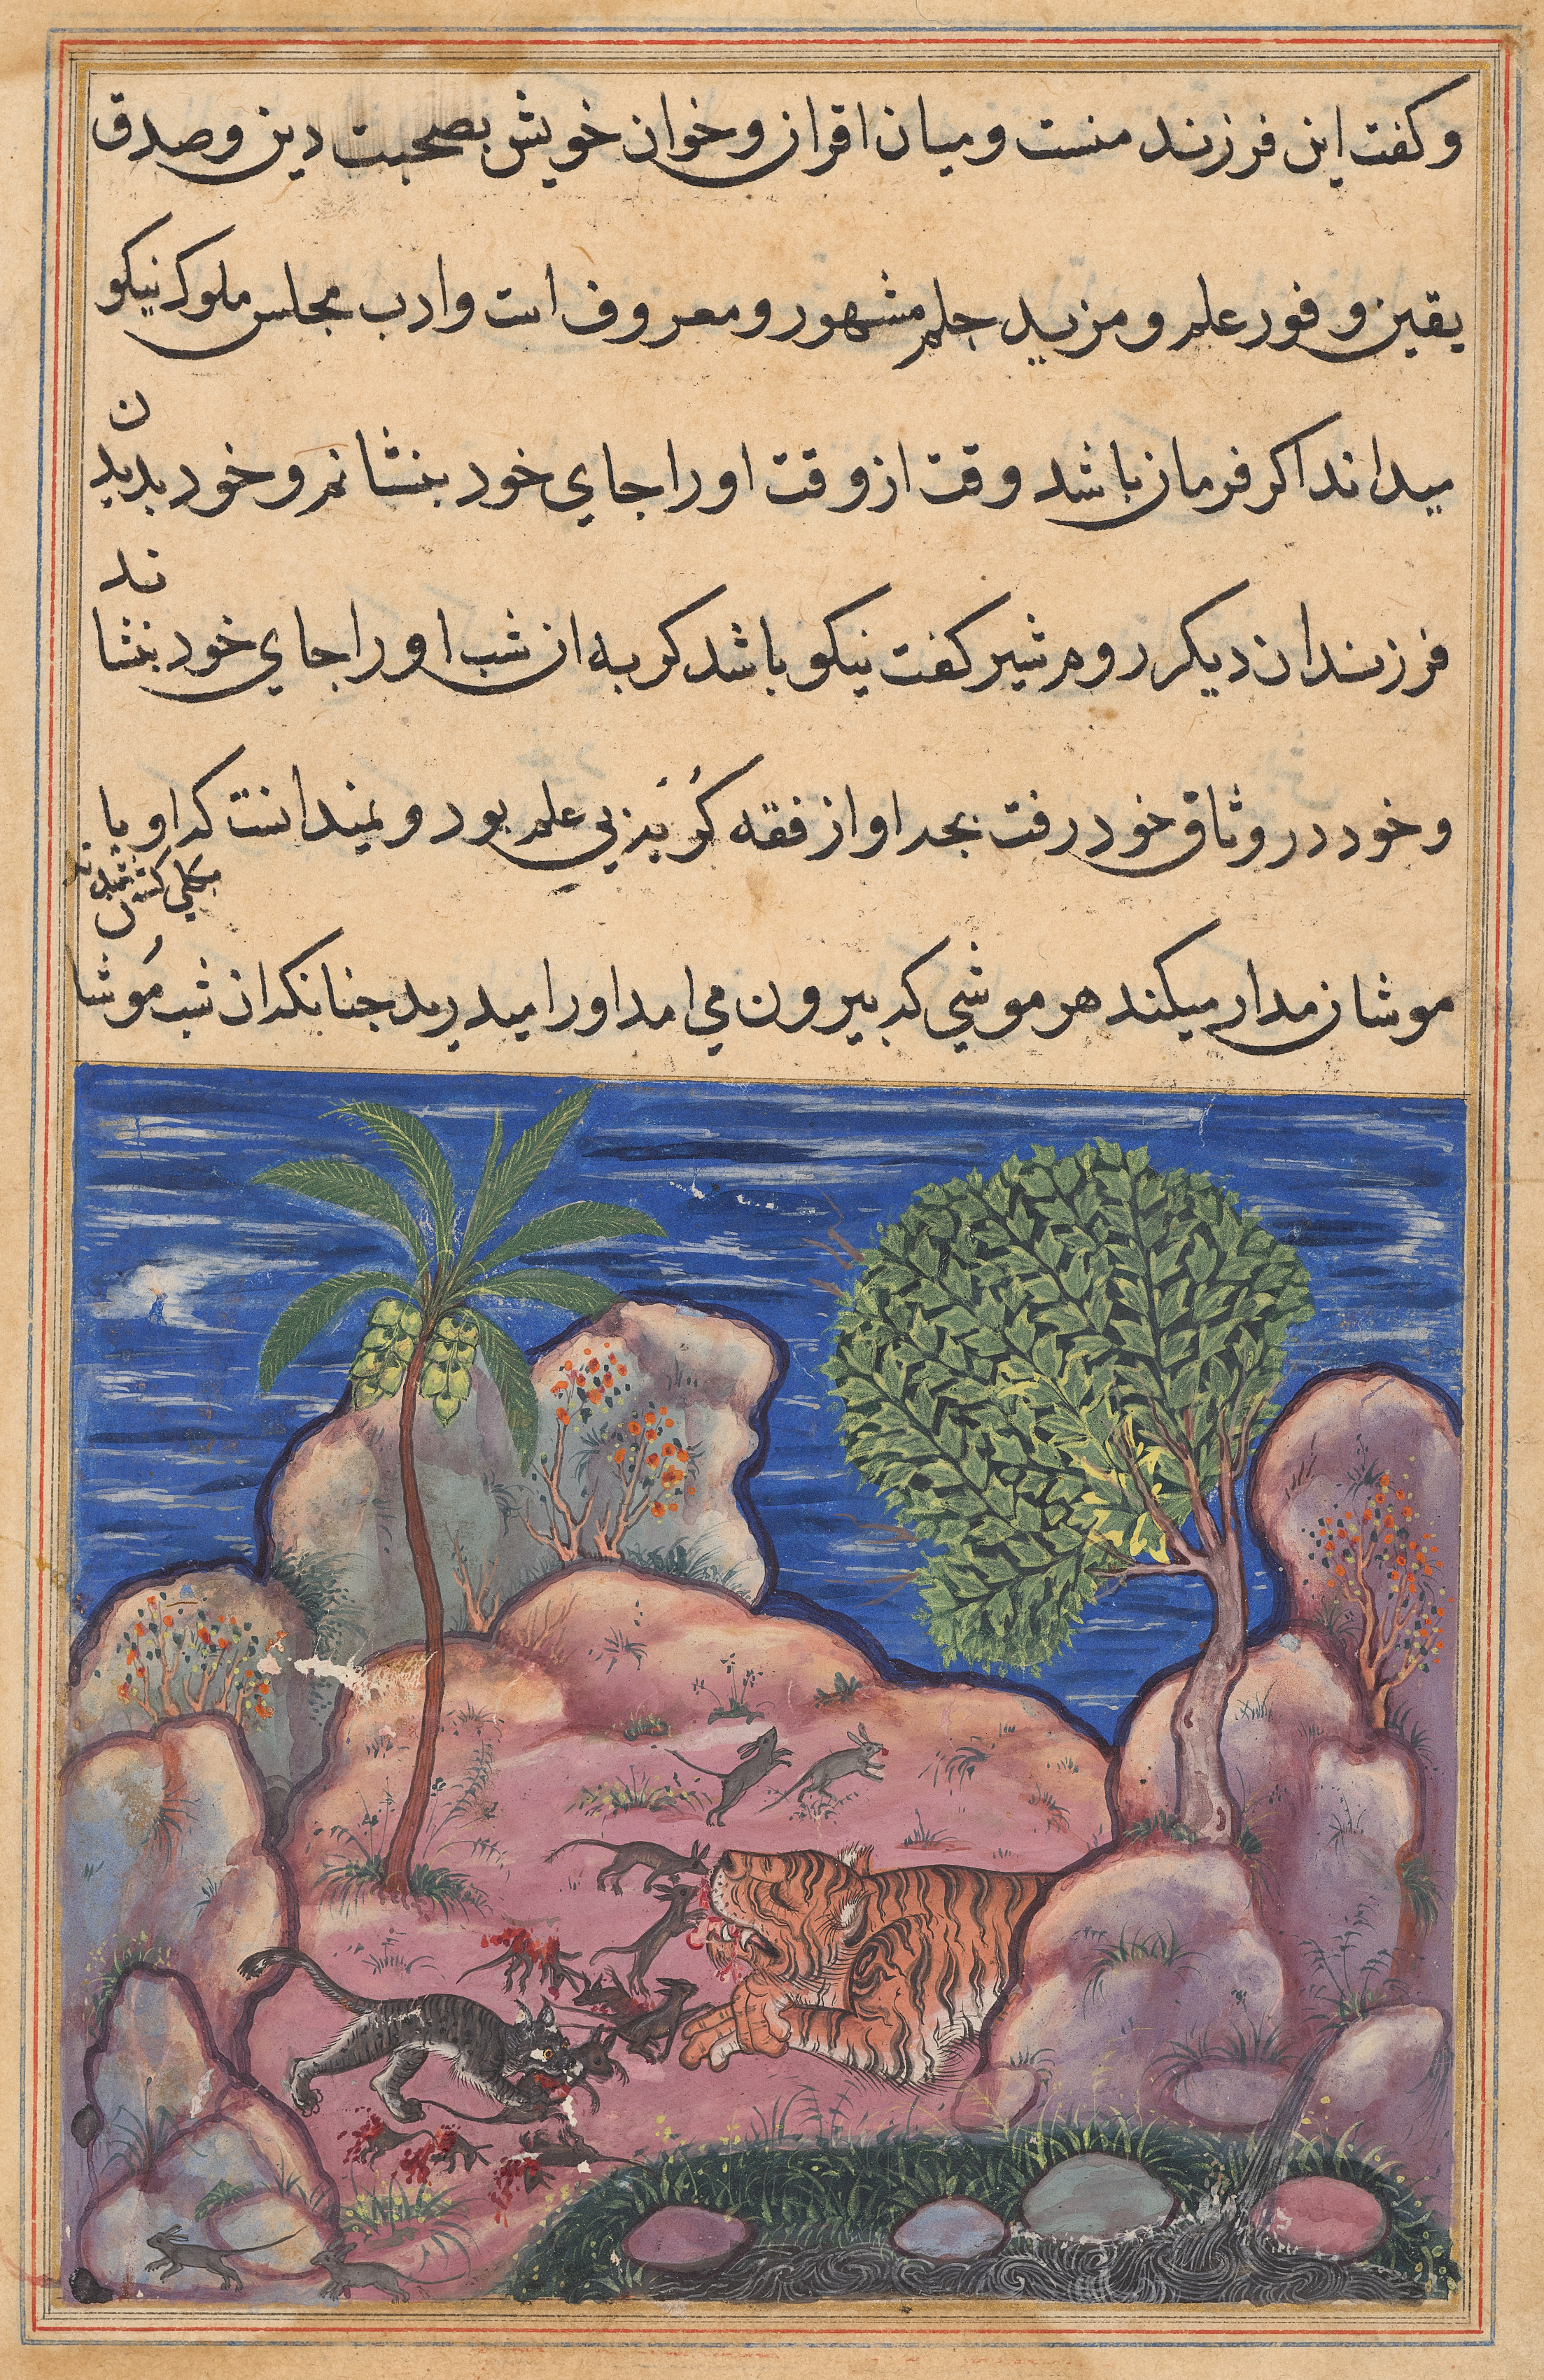 وكفت این فرزند منست و میان اقران و خوان خویش بصحبت دین و صدق
یقین و فور علم و مزید حلم مشهور و معروف است و ادب مجلس ملوک نیکو
میداند اکر فرمان باشد وقت از وقت او را جای خود بنشانم و خود بدیدن
فرزندان دیکر روم شیر کفت نیکو باشد کربه ان شب او را جای خود بنشاند
و خود در وثاق خود رفت بجه او از فقه بی علم بود و نمیدانست که او با
موشان مدار میکند هر موشی که بیرون می امد او را میدرید جنانکه ان شب موشان
بکلی کشته شدند